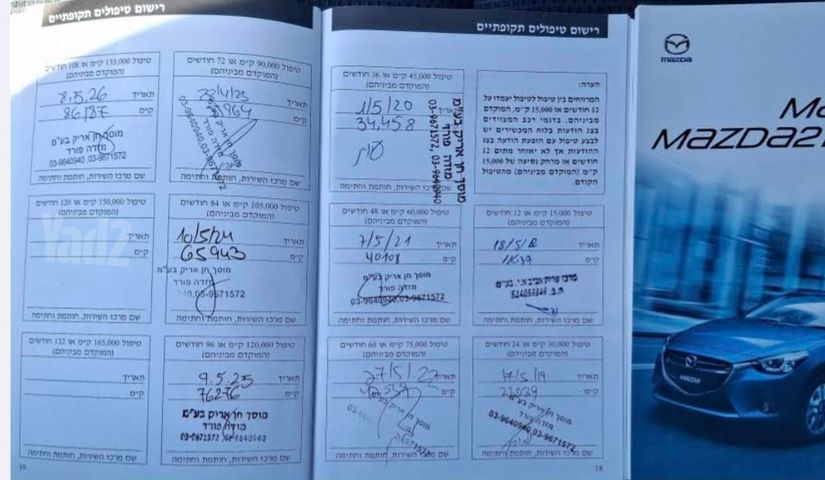 רישום טיפולים תקופתיים
הערה:
המרווחים בין טיפול לטיפול יעמדו על
12 חודשים או 15,000 ק"מ, המוקדם
מביניהם. בדגמי רכב המצוידים
בצג הודעות בלוח המכשירים יש
לבצע טיפול עם הופעת הודעה בצג
ההודעות אך לא יאוחר מתום 12
חודשים או מרחק נסיעה של 15,000
ק"מ (המוקדם מביניהם) מהטיפול
הקודם.
טיפול 15,000 ק"מ או 12 חודשים
(המוקדם מביניהם)
תאריך
ק"מ
שם מרכז השירות, חותמת וחתימה
טיפול 30,000 ק"מ או 24 חודשים
(המוקדם מביניהם)
תאריך 17/5/19
ק"מ 22039
מוסך חן אריק בע"מ
מזדה פורד
03-9640940,03-9671572
שם מרכז השירות, חותמת וחתימה
טיפול 45,000 ק"מ או 36 חודשים
(המוקדם מביניהם)
תאריך 1/5/20
ק"מ 34,458
מוסך חן אריק בע"מ
מזדה פורד
03-9671572, 03-9640940
שם מרכז השירות, חותמת וחתימה
טיפול 60,000 ק"מ או 48 חודשים
(המוקדם מביניהם)
תאריך 7/5/21
ק"מ 40108
מוסך חן אריק בע"מ
מזדה פורד
03-9640940,03-9671572
שם מרכז השירות, חותמת וחתימה
טיפול 75,000 ק"מ או 60 חודשים
(המוקדם מביניהם)
תאריך 27/5/22
ק"מ
מוסך חן אריק בע"מ
שם מרכז השירות, חותמת וחתימה
18
רישום טיפולים תקופתיים
טיפול 90,000 ק"מ או 72 חודשים
(המוקדם מביניהם)
תאריך
ק"מ
מוסך חן אריק בע"מ
מזדה פורד
שם מרכז השירות, חותמת וחתימה
טיפול 105,000 ק"מ או 84 חודשים
(המוקדם מביניהם)
תאריך 10/5/24
ק"מ 65943
מוסך חן אריק בע"מ
מזדה פורד
שם מרכז השירות, חותמת וחתימה
טיפול 120,000 ק"מ או 96 חודשים
(המוקדם מביניהם)
תאריך 9.5.25
ק"מ 76276
מוסך חן אריק בע"מ
מזדה פורד
03-9671572, 03-9640940
שם מרכז השירות, חותמת וחתימה
טיפול 135,000 ק"מ או 108 חודשים
(המוקדם מביניהם)
תאריך 8.5.26
ק"מ 86187
מוסך חן אריק בע"מ
מזדה פורד
03-9640940,03-9671572
שם מרכז השירות, חותמת וחתימה
טיפול 150,000 ק"מ או 120 חודשים
(המוקדם מביניהם)
תאריך
ק"מ
שם מרכז השירות, חותמת וחתימה
טיפול 165,000 ק"מ או 132 חודשים
(המוקדם מביניהם)
תאריך
ק"מ
שם מרכז השירות, חותמת וחתימה
19
Yad2
mazda
MAZDA2
mazda